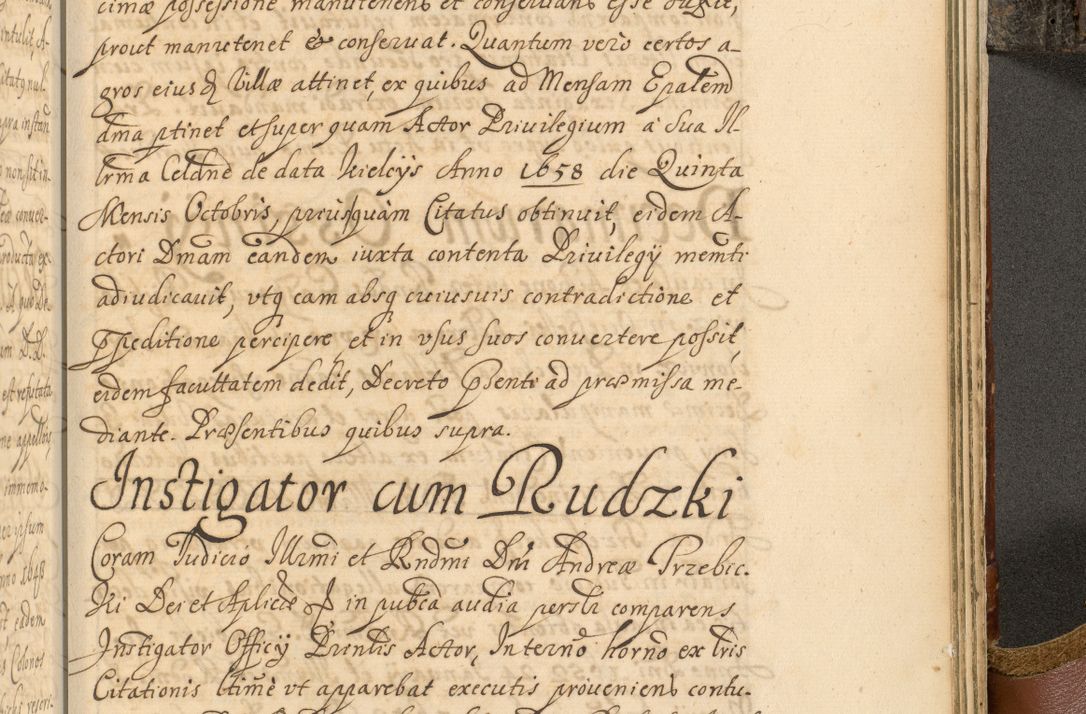 cimæ possessione manutenens et conseruans esse duxit,
prout manutenet & conseruat. Quantum verò certos a-
gros eiusd Villæ attinet, ex quibus ad Mensam Epalem
dma ptinet et super quam Actor Priuilegium à Sua Il-
lrma Celdne de data Kielcÿs Anno 1658 die Quinta
Mensis Octobris, priusquàm Citatus obtinuit, eidem A-
ctori Dmam eandem iuxta contenta Priuilegÿ memti
adiudicauit, vtq eam absq cuiusuis contradictione et
Ppeditione percipere et in vsus suos conuertere possit,
eidem facultatem dedit, Decreto Psenti ad præmissa me-
diante. Præsentibus quibus supra.
Instigator cum Rudzki
Coram Judicio Illrmi et Rndmi Dni Andreæ Trzebic.
ki Dei et Aplicæ in pubca audia persltr comparens
Instigator Officÿ Prentis Actor, In terno horno ex lris
Citationis ltime vt apparebat executis proueniens contu-